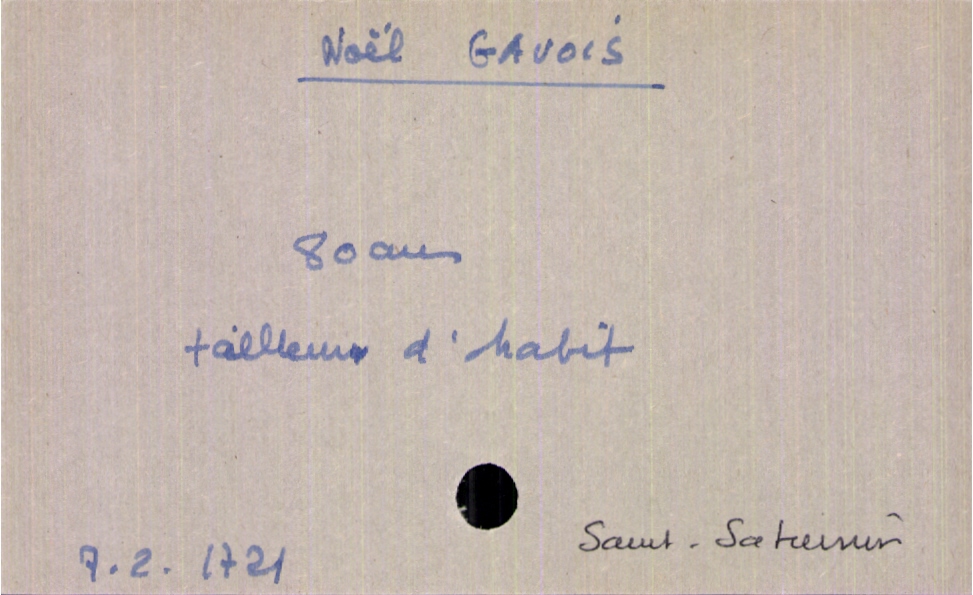 Noël GAVOIS
80 ans
tailleur d'habit
7.2.1721
Saint-Saturnin